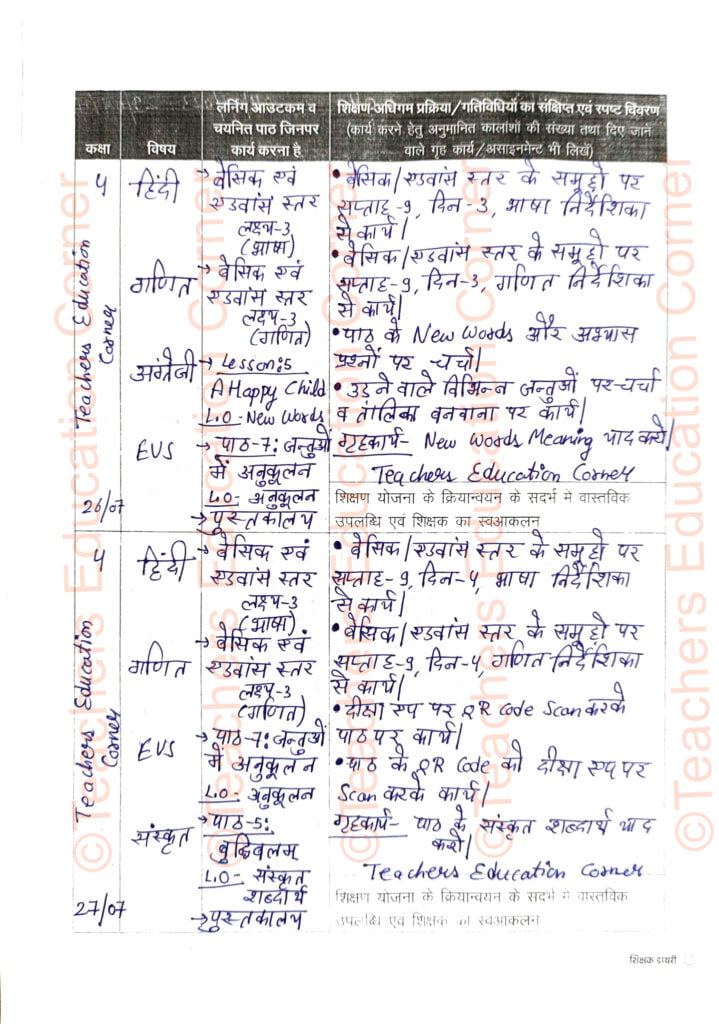 कक्षा
विषय
लर्निंग आउटकम व
चयनित पाठ जिनपर
कार्य करना है
शिक्षण-अधिगम प्रक्रिया/गतिविधियों का संक्षिप्त एवं स्पष्ट विवरण
(कार्य करने हेतु अनुमानित कालांशों की संख्या तथा दिए जाने
वाले गृह कार्य/असाइनमेंट भी लिखें)
4
Teachers Education
Corner
26/07
हिंदी
→ बेसिक एवं
एडवांस स्तर
लक्ष्य-3
(भाषा)
• बेसिक/एडवांस स्तर के समूहो पर
सप्ताह-9, दिन-3, भाषा निर्देशिका
से कार्य।
गणित
→ बेसिक एवं
एडवांस स्तर
लक्ष्य-3
(गणित)
• बेसिक/एडवांस स्तर के समूहो पर
सप्ताह-9, दिन-3, गणित निर्देशिका
से कार्य।
अंग्रेजी
→ Lesson:5
A Happy Child
L.O- New Words
• पाठ के New Words और अभ्यास
प्रश्नों पर चर्चा।
EVS
→ पाठ-7: जन्तुओं
में अनुकूलन
L.O- अनुकूलन
→ पुस्तकालय
• उडने वाले विभिन्न जन्तुओं पर चर्चा
व तालिका बनवाना पर कार्य।
गृहकार्य- New Words Meaning याद करो।
Teachers Education Corner
शिक्षण योजना के क्रियान्वयन के सदर्भ मे वास्तविक
उपलब्धि एवं शिक्षक का स्वआकलन
4
Teachers Education
Corner
27/07
हिंदी
→ बेसिक एवं
एडवांस स्तर
लक्ष्य-3
(भाषा)
• बेसिक/एडवांस स्तर के समूहो पर
सप्ताह-9, दिन-4, भाषा निर्देशिका
से कार्य।
गणित
→ बेसिक एवं
एडवांस स्तर
लक्ष्य-3
(गणित)
• बेसिक/एडवांस स्तर के समूहो पर
सप्ताह-9, दिन-4, गणित निर्देशिका
से कार्य।
EVS
→ पाठ-7: जन्तुओं
में अनुकूलन
L.O- अनुकूलन
• दीक्षा एप पर QR Code Scan करके
पाठ पर कार्य।
संस्कृत
→ पाठ-5:
बुद्धिबलम्
L.O- संस्कृत
शब्दार्थ
→ पुस्तकालय
• पाठ के QR Code को दीक्षा एप पर
Scan करके कार्य।
गृहकार्य- पाठ के संस्कृत शब्दार्थ याद
करो।
Teachers Education Corner
शिक्षण योजना के क्रियान्वयन के सदर्भ मे वास्तविक
उपलब्धि एवं शिक्षक का स्वआकलन
शिक्षक डायरी
©Teachers Education Corner
©Teachers Education Corner
©Teachers Education Corner
©Teachers Education Corner